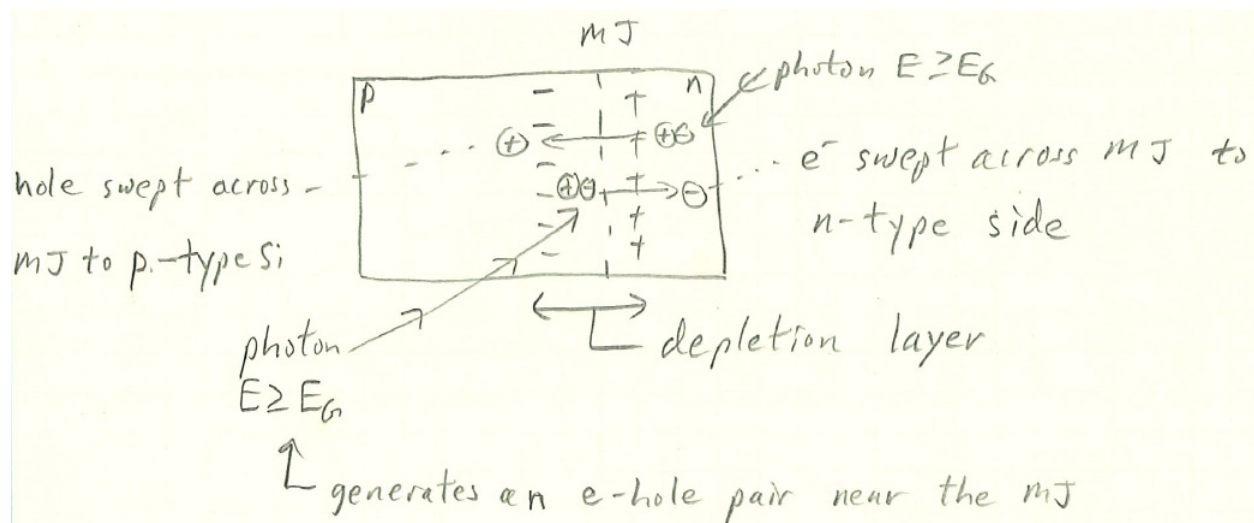 MJ
p
n
photon E ≥ E_G
hole swept across
MJ to p-type Si
... e⁻ swept across MJ to
n-type side
depletion layer
photon
E ≥ E_G
generates an e-hole pair near the MJ